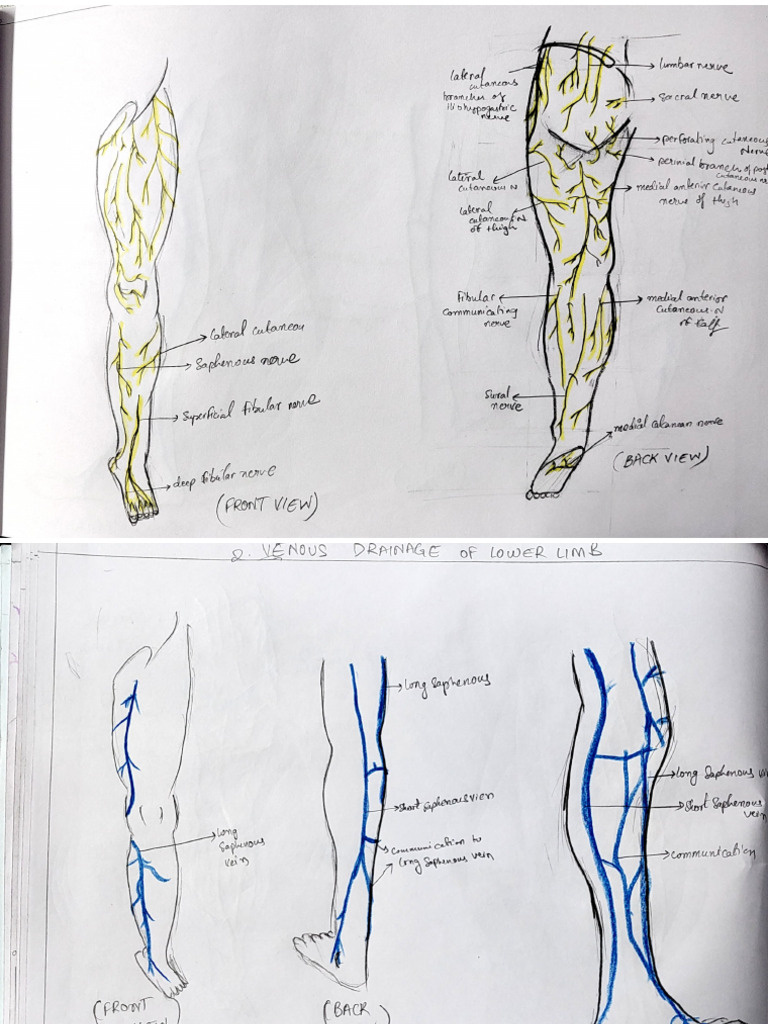 lateral cutaneou
Saphenous nerve
Superficial fibular nerve
deep fibular nerve
(FRONT VIEW)
lateral
cutaneous
branches of
nerve
lumbar nerve
Sacral nerve
perforating cutaneous
nerve
perinial branch of post
cutaneous
medial anterior cutaneous
nerve of thigh
lateral
cutaneous N
lateral
cutaneous N
of thigh
fibular
communicating
nerve
medial anterior
cutaneous N
of calf
Sural
nerve
medial calcanean nerve
(BACK VIEW)
2. VENOUS DRAINAGE OF LOWER LIMB
long
saphenous
vein
(FRONT
long saphenous
short saphenous vien
communication to
long saphenous vein
(BACK
long saphenous
short saphenous
vein
communication